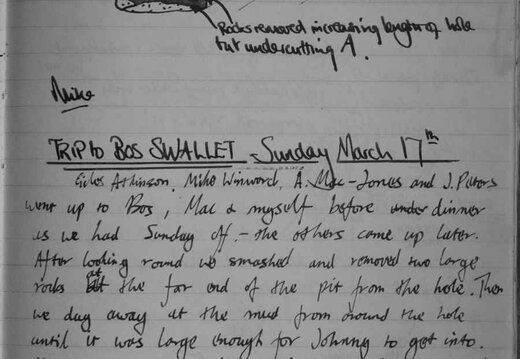 Rocks removed increasing length of hole
but undercutting A.
Mike
TRIP to BOS SWALLET - Sunday March 17th
Giles Atkinson, Mike Winword, A. Mac-Jones and J. Peters
went up to Bos, Mac & myself before under dinner
as we had Sunday off. - the others came up later.
After looking round we smashed and removed two large
rocks at the far end of the pit from the hole. Then
we dug away at the mud from around the hole
until it was large enough for Johnny to get into.